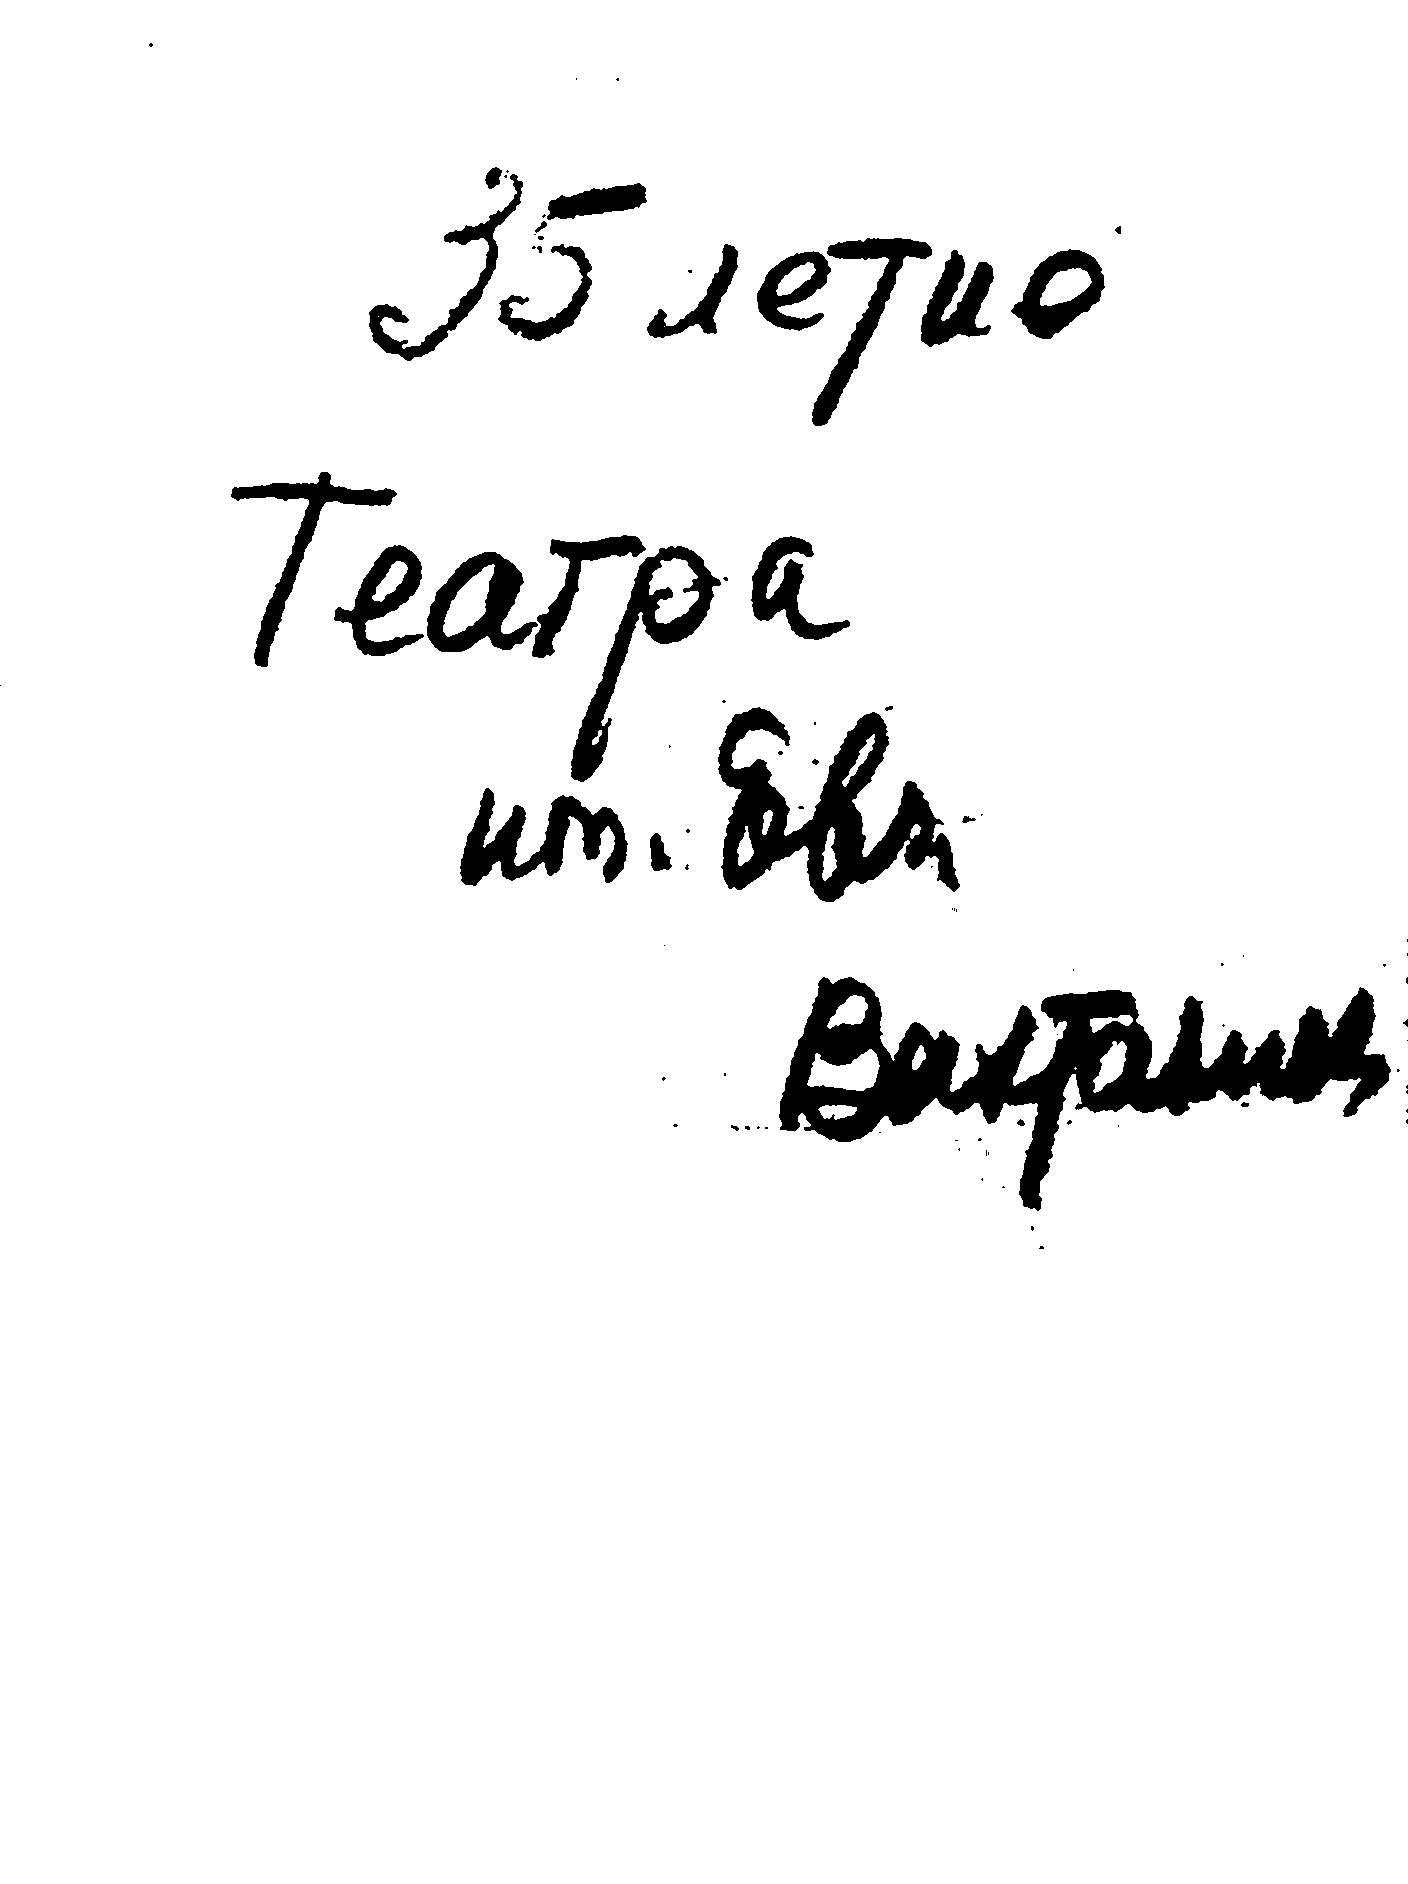 35 летию
Театра
им. Евг.
Вахтангов